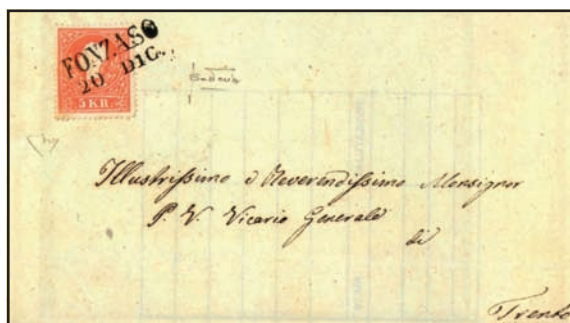 FONZASO
20 DIC.
5 KR.
Illustrissimo e Reverendissimo Monsignor
P. V. Vicario Generale
di
Trento